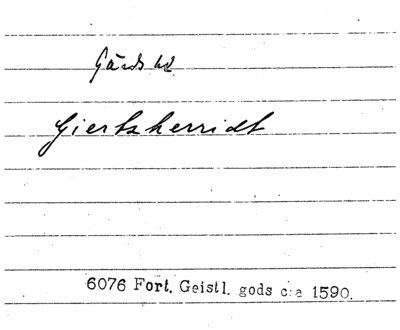 Gärds hd
Giertzherridt
6076 Fort. Geistl. gods c:a 1590.